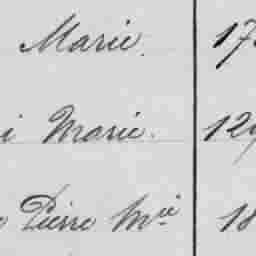 Marie. 17
i Marie. 129
Pierre Mie 18